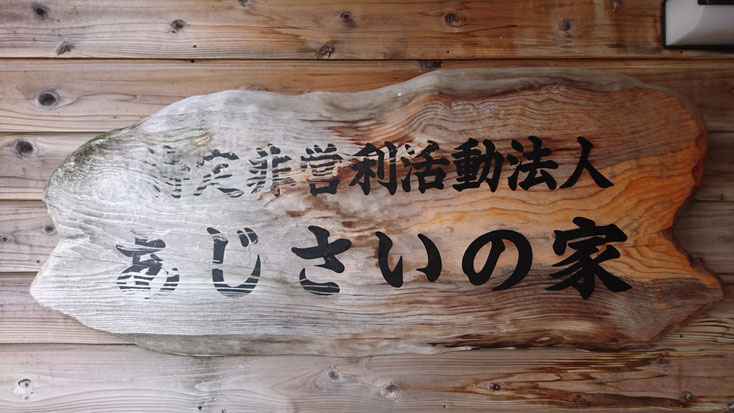 特定非営利活動法人
あじさいの家